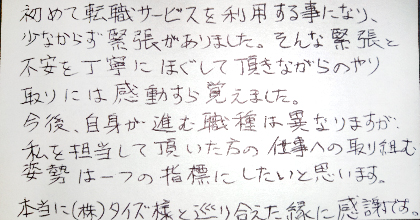 初めて転職サービスを利用する事になり、
少なからず緊張がありました。そんな緊張と
不安を丁寧にほぐして頂きながらのやり
取りには感動すら覚えました。
今後、自身が進む職種は異なりますが、
私を担当して頂いた方の仕事への取り組む
姿勢は一つの指標にしたいと思います。
本当に(株)タイズ様と巡り合えた縁に感謝です